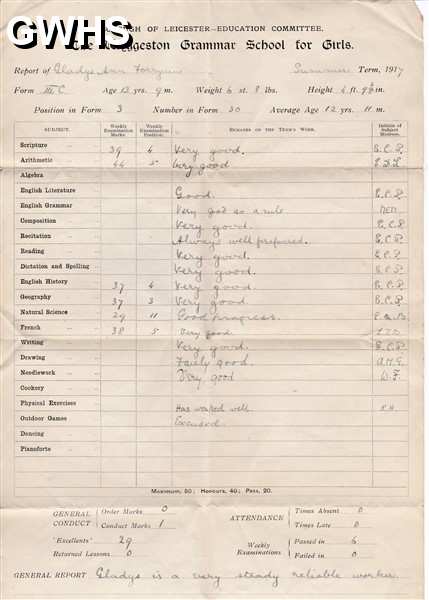 GWHS
OF LEICESTER—EDUCATION COMMITTEE.
The Wyggeston Grammar School for Girls.
Report of Gladys Ann Summer Term, 1917
Form III C Age 12 yrs. 9 m. Weight 6 st. 8 lbs. Height 4 ft. 9½ in.
Position in Form 3 Number in Form 30 Average Age 12 yrs. 11 m.
SUBJECT. Weekly Examination Marks Weekly Examination Position. REMARKS ON THE TERM'S WORK. Initials of Subject Mistress.
Scripture 39 4 Very good. E.C.P.
Arithmetic 44 5 Very good
Algebra
English Literature Good. E.C.P.
English Grammar Very good as a rule
Composition Very good. E.C.P.
Recitation Always well prepared. E.C.P.
Reading Very good. E.C.P.
Dictation and Spelling Very good. E.C.P.
English History 37 4 Very good. E.C.P.
Geography 37 3 Very good E.C.P.
Natural Science 29 11 Good progress.
French 38 5 Very good
Writing Very good. E.C.P.
Drawing Fairly good. A.M.G.
Needlework Very good W.F.
Cookery
Physical Exercises Has worked well
Outdoor Games Excused.
Dancing
Pianoforte
MAXIMUM, 50; HONOURS, 40; PASS, 20.
GENERAL CONDUCT Order Marks 0 Conduct Marks 1 ATTENDANCE Times Absent 0 Times Late 0
'Excellents' 29 Returned Lessons 0 Weekly Examinations Passed in 6 Failed in 0
GENERAL REPORT Gladys is a very steady reliable worker.